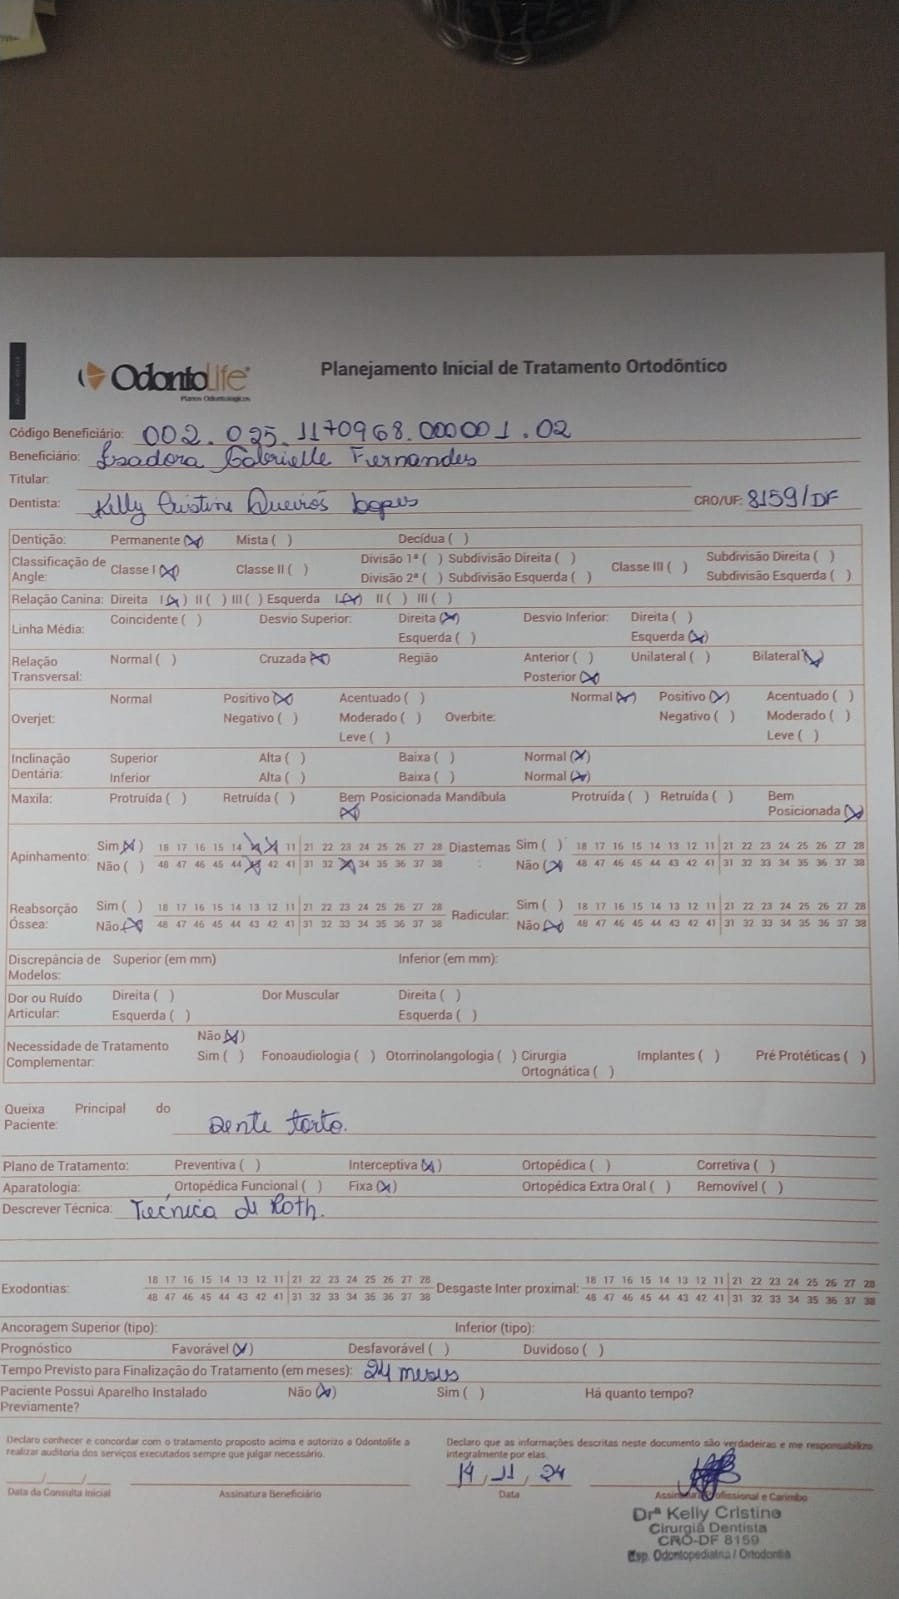 OdontoLife
Planos Odontológicos
Planejamento Inicial de Tratamento Ortodôntico
Código Beneficiário: 002.025.1170968.000001.02
Beneficiário: Isadora Gabrielle Fernandes
Titular:
Dentista: Kelly Cristine Queirós Lopes CRO/UF: 8159/DF
Dentição: Permanente (X) Mista ( ) Decídua ( )
Classificação de Angle: Classe I (X) Classe II ( ) Divisão 1ª ( ) Subdivisão Direita ( ) Classe III ( ) Subdivisão Direita ( )
Divisão 2ª ( ) Subdivisão Esquerda ( ) Subdivisão Esquerda ( )
Relação Canina: Direita I (X) II ( ) III ( ) Esquerda I (X) II ( ) III ( )
Linha Média: Coincidente ( ) Desvio Superior: Direita (X) Desvio Inferior: Direita ( )
Esquerda ( ) Esquerda (X)
Relação Transversal: Normal ( ) Cruzada (X) Região Anterior ( ) Unilateral ( ) Bilateral (X)
Posterior (X)
Overjet: Normal Positivo (X) Acentuado ( ) Overbite: Normal (X) Positivo (X) Acentuado ( )
Negativo ( ) Moderado ( ) Negativo ( ) Moderado ( )
Leve ( ) Leve ( )
Inclinação Dentária: Superior Alta ( ) Baixa ( ) Normal (X)
Inferior Alta ( ) Baixa ( ) Normal (X)
Maxila: Protruída ( ) Retruída ( ) Bem Posicionada (X) Mandíbula Protruída ( ) Retruída ( ) Bem Posicionada (X)
Apinhamento: Sim (X) 18 17 16 15 14 X X 11 21 22 23 24 25 26 27 28 Diastemas: Sim ( ) 18 17 16 15 14 13 12 11 21 22 23 24 25 26 27 28
Não ( ) 48 47 46 45 44 X 42 41 31 32 X 34 35 36 37 38 Não (X) 48 47 46 45 44 43 42 41 31 32 33 34 35 36 37 38
Reabsorção Óssea: Sim ( ) 18 17 16 15 14 13 12 11 21 22 23 24 25 26 27 28 Radicular: Sim ( ) 18 17 16 15 14 13 12 11 21 22 23 24 25 26 27 28
Não (X) 48 47 46 45 44 43 42 41 31 32 33 34 35 36 37 38 Não (X) 48 47 46 45 44 43 42 41 31 32 33 34 35 36 37 38
Discrepância de Modelos: Superior (em mm) Inferior (em mm):
Dor ou Ruído Articular: Direita ( ) Dor Muscular Direita ( )
Esquerda ( ) Esquerda ( )
Necessidade de Tratamento Complementar: Não (X)
Sim ( ) Fonoaudiologia ( ) Otorrinolangologia ( ) Cirurgia Ortognática ( ) Implantes ( ) Pré Protéticas ( )
Queixa Principal do Paciente: Dente torto.
Plano de Tratamento: Preventiva ( ) Interceptiva (X) Ortopédica ( ) Corretiva ( )
Aparatologia: Ortopédica Funcional ( ) Fixa (X) Ortopédica Extra Oral ( ) Removível ( )
Descrever Técnica: Técnica di Roth.
Exodontias: 18 17 16 15 14 13 12 11 21 22 23 24 25 26 27 28 Desgaste Inter proximal: 18 17 16 15 14 13 12 11 21 22 23 24 25 26 27 28
48 47 46 45 44 43 42 41 31 32 33 34 35 36 37 38 48 47 46 45 44 43 42 41 31 32 33 34 35 36 37 38
Ancoragem Superior (tipo): Inferior (tipo):
Prognóstico Favorável (X) Desfavorável ( ) Duvidoso ( )
Tempo Previsto para Finalização do Tratamento (em meses): 24 meses
Paciente Possui Aparelho Instalado Previamente? Não (X) Sim ( ) Há quanto tempo?
Declaro conhecer e concordar com o tratamento proposto acima e autorizo a Odontolife a
realizar auditoria dos serviços executados sempre que julgar necessário.
Declaro que as informações descritas neste documento são verdadeiras e me responsabilizo
integralmente por elas.
14 / 11 / 24
Data da Consulta Inicial Assinatura Beneficiário Data Assinatura Profissional e Carimbo
Drª Kelly Cristine
Cirurgiã Dentista
CRO-DF 8159
Esp. Odontopediatria / Ortodontia